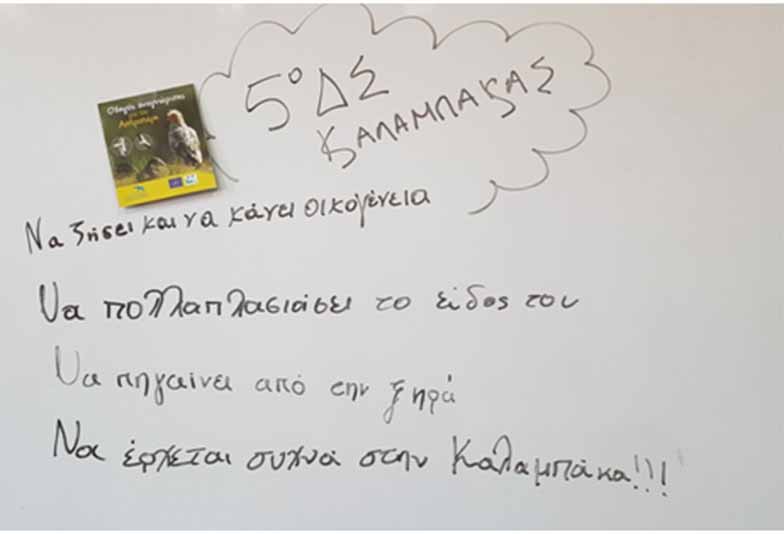 5° ΔΣ
ΚΑΛΑΜΠΑΚΑΣ
Οδηγός αναγνώρισης
για τον
Ασπροπάρη
Να ζήσει και να κάνει οικογένεια
Να πολλαπλασιάσει το είδος του
Να πηγαίνει από την ξηρά
Να έρχεται συχνά στην Καλαμπάκα!!!